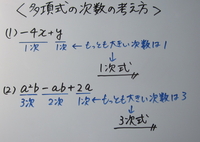 <多項式の次数の考え方>
(1) -4x+y
1次 1次 ←もっとも大きい次数は1
↓
1次式
(2) a²b-ab+2a
3次 2次 1次←もっとも大きい次数は3
↓
3次式